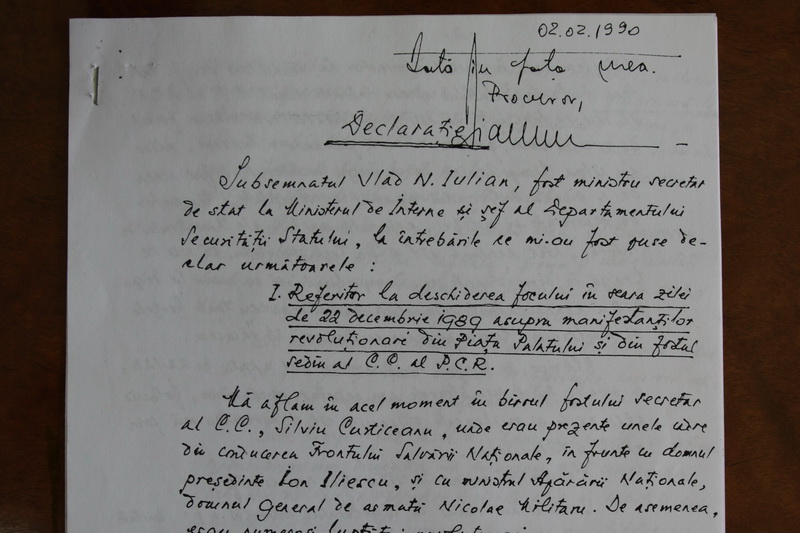 02.02.1990
Dată în fața mea.
Procuror,
Declarație
Subsemnatul Vlad N. Iulian, fost ministru secretar
de stat la Ministerul de Interne și șef al Departamentului
Securității Statului, la întrebările ce mi-au fost puse de-
clar următoarele :
I. Referitor la deschiderea focului în seara zilei
de 22 decembrie 1989 asupra manifestanților
revoluționari din Piața Palatului și din fostul
sediu al C.C. al P.C.R.
Mă aflam în acel moment în biroul fostului secretar
al C.C., Silviu Curticeanu, unde erau prezente unele cadre
din conducerea Frontului Salvării Naționale, în frunte cu domnul
președinte Ion Iliescu, și cu ministrul Apărării Naționale,
domnul general de armată Nicolae Militaru. De asemenea,
erau numeroși